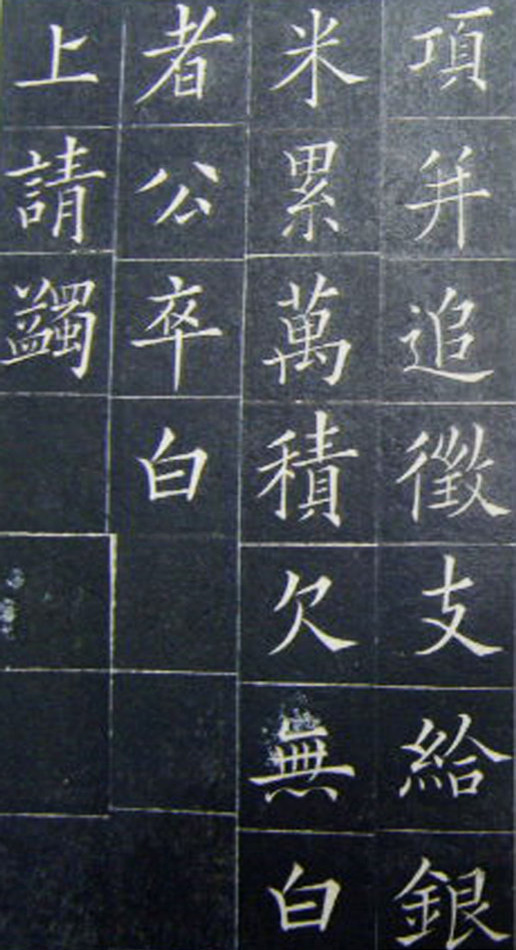 項并追徵支給銀
米累萬積欠無白
者公卒白
上請蠲